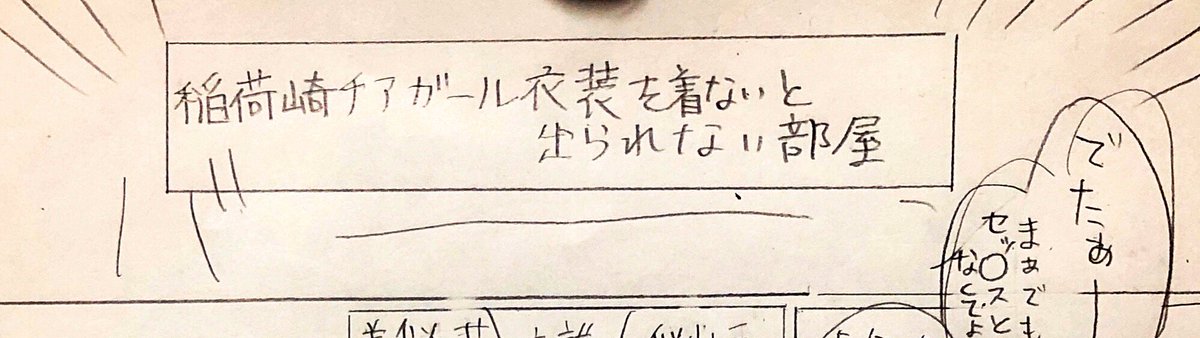 稲荷崎チアガール衣装を着ないと
出られない部屋
でたぁー
まぁでも
セッ〇スと
なくてよ